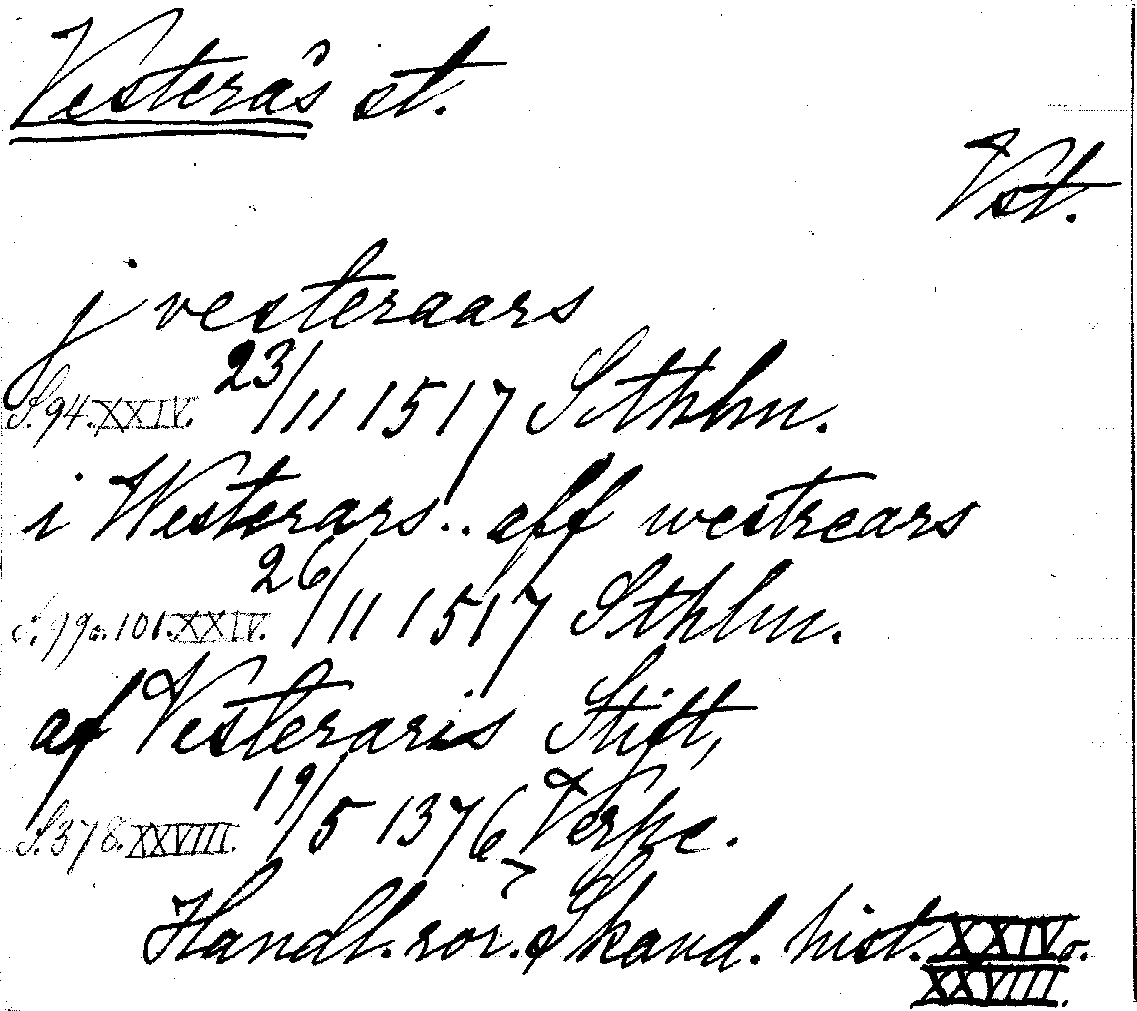 Vesterås st.
Vst.
j vesteraars
S. 94. XXIV. 23/11 1517 Sthlm.
i Westerars .. aff westrears
S. 99 o. 101. XXIV. 26/11 1517 Sthlm.
af Vesteraris Stift,
S. 378. XXVIII. 19/5 1376,
Handl. rör. Skand. hist. XXIV o.
XXVIII.